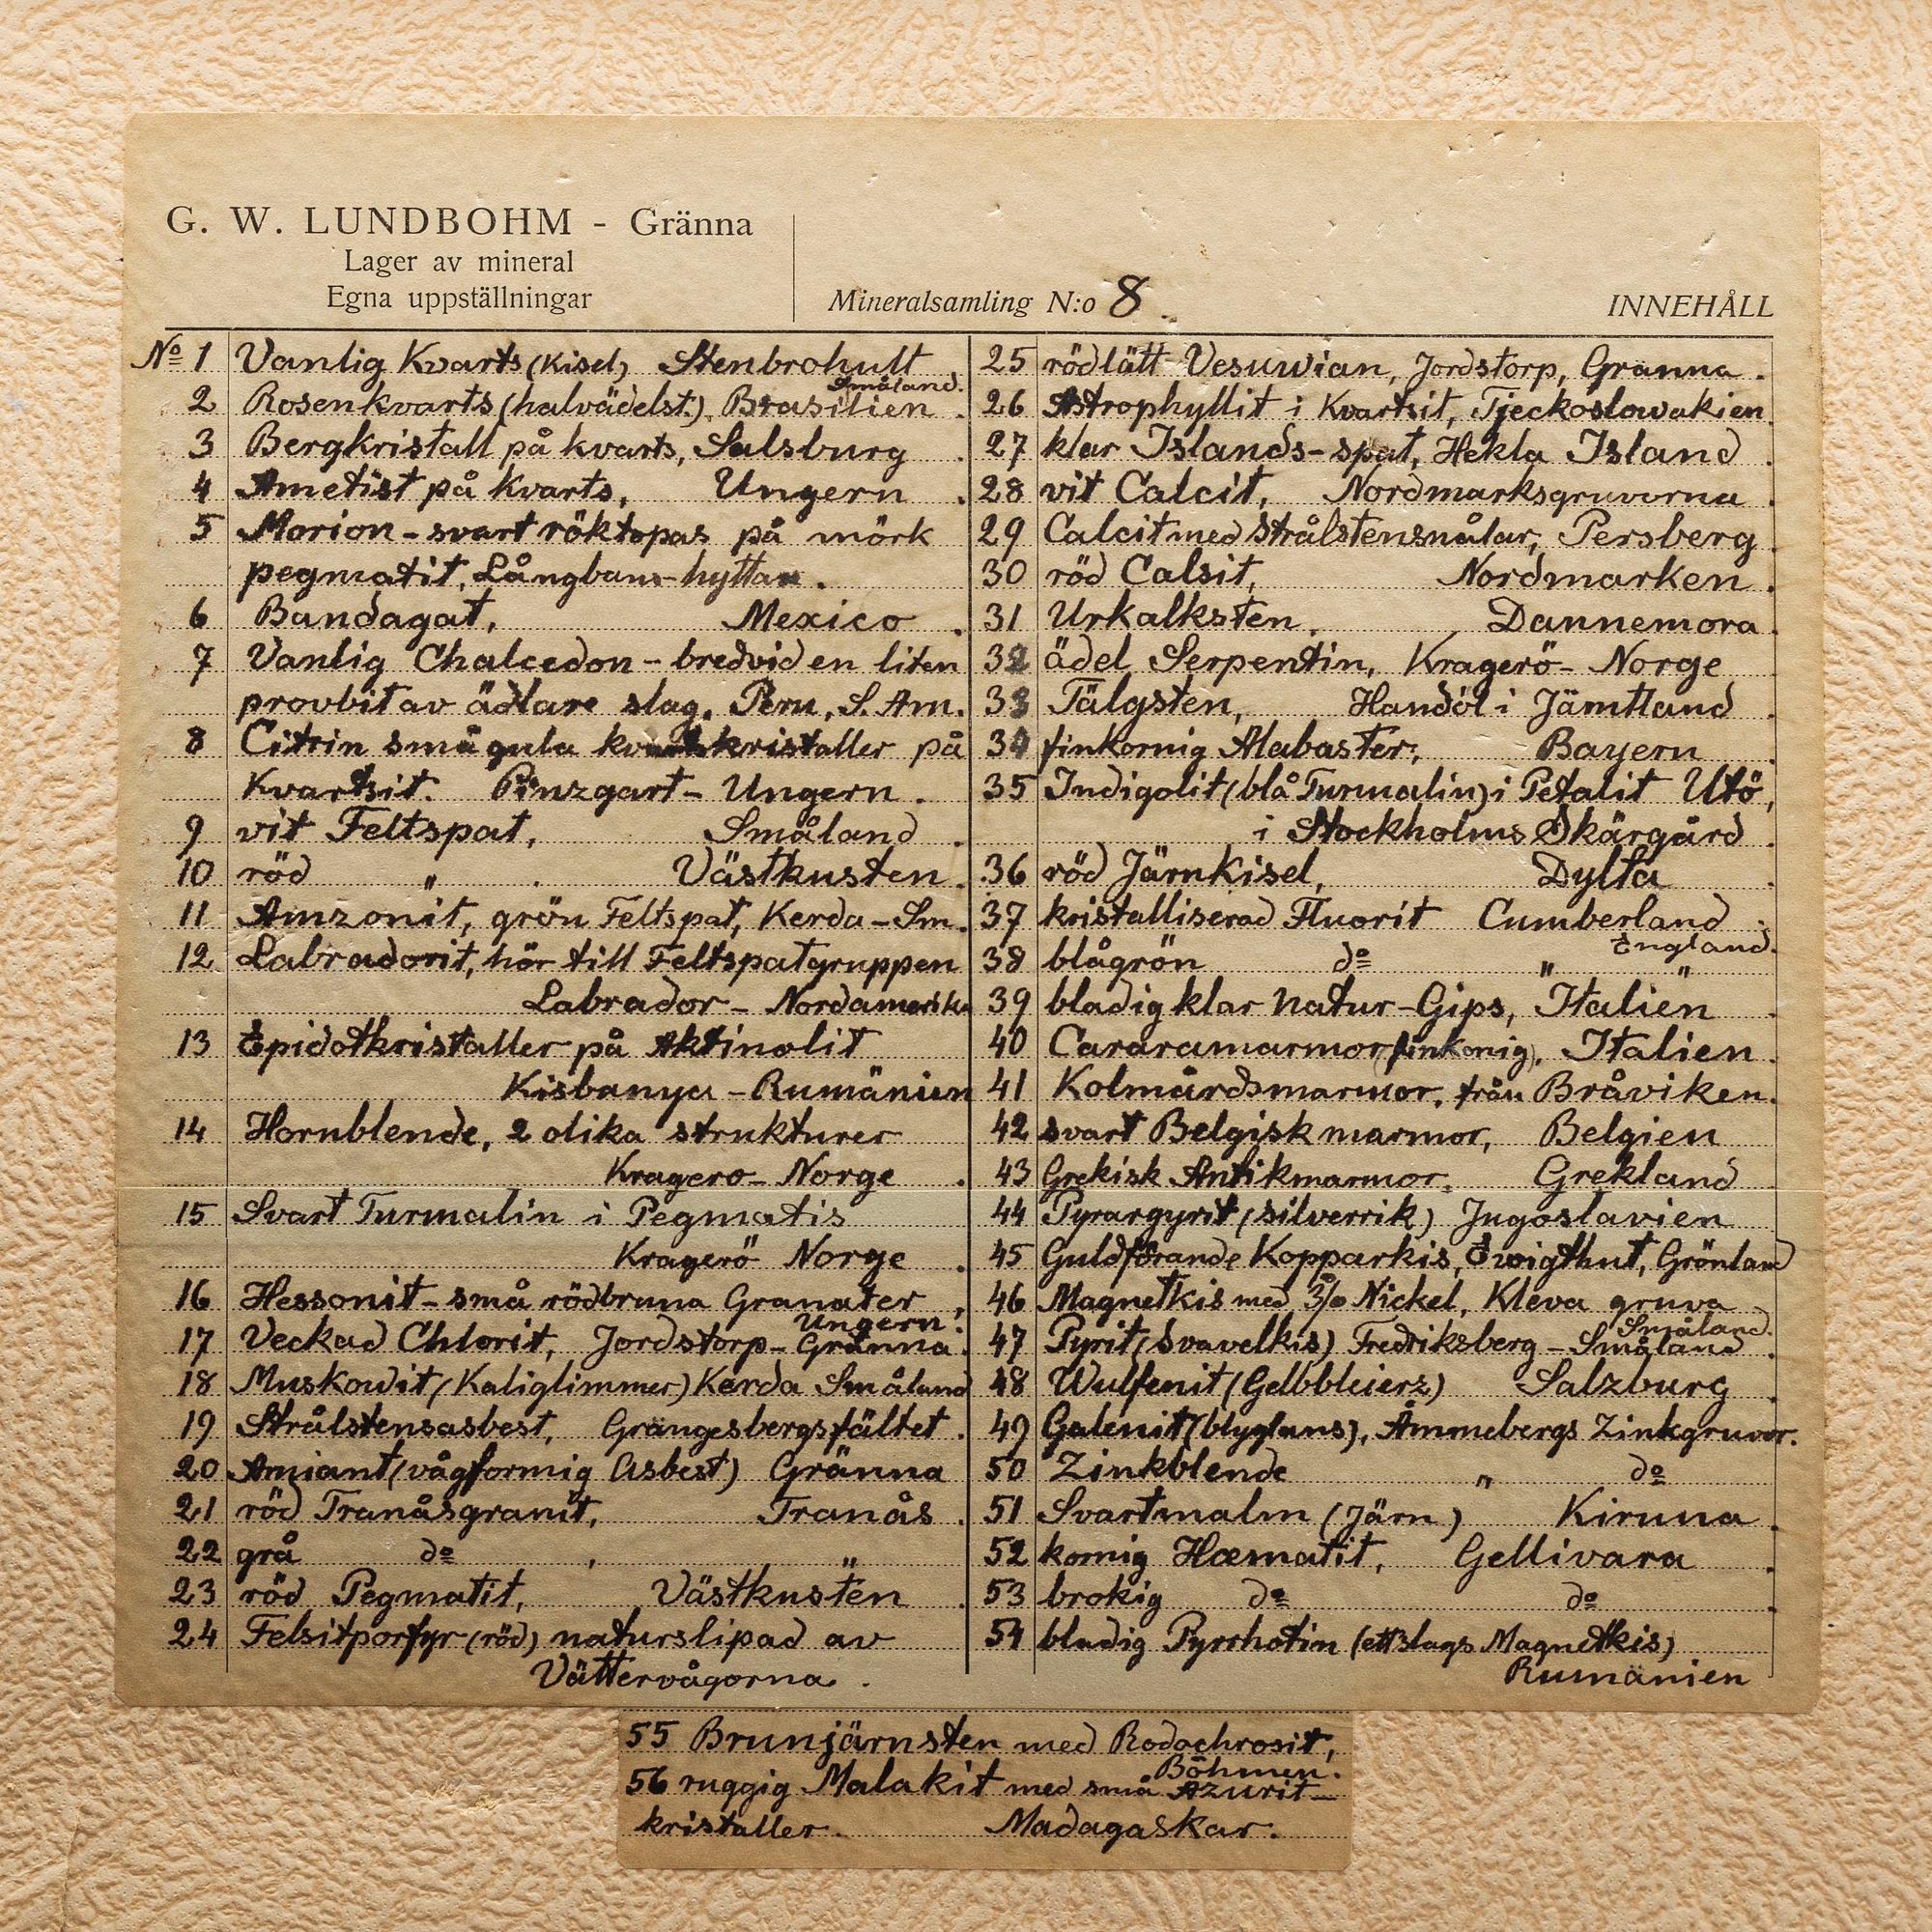 G. W. LUNDBOHM - Gränna
Lager av mineral
Egna uppställningar
Mineralsamling N:o 8
INNEHÅLL
No 1 Vanlig Kvarts (Kisel) Stenbrohult
Småland.
2 Rosenkvarts (halvädelst.), Brasilien.
3 Bergkristall på kvarts, Salsburg.
4 Ametist på Kvarts, Ungern.
5 Morion - svart röktopas på mörk
pegmatit, Långbans-hyttan.
6 Bandagat, Mexico.
7 Vanlig Chalcedon - bredvid en liten
provbit av ädlare slag. Peru, S. Am.
8 Citrin små gula kvartskristaller på
Kvartsit. Pinzgart - Ungern.
9 vit Feltspat, Småland.
10 röd " . Västkusten.
11 Amzonit, grön Feltspat, Kerda - Sm.
12 Labradorit, hör till Feltspatgruppen
Labrador - Nordamerika
13 Epidotkristaller på Aktinolit
Kisbanya - Rumänien
14 Hornblende, 2 olika strukturer
Kragero - Norge.
15 Svart Turmalin i Pegmatis
Kragerö Norge.
16 Hessonit - små rödbruna Granater,
Ungern.
17 Veckad Chlorit, Jordstorp - Gränna.
18 Muskowit (Kaliglimmer) Kerda Småland
19 Strålstensasbest, Grängesbergsfältet.
20 Amiant (vågformig Asbest) Gränna
21 röd Tranåsgranit, Tranås.
22 grå do , "
23 röd Pegmatit, Västkusten.
24 Felsitporfyr (röd) naturslipad av
Vättervågorna.
25 rödlätt Vesuwian, Jordstorp, Gränna.
26 Astrophyllit i Kvartsit, Tjeckoslowakien
27 klar Islands-spat, Hekla Island.
28 vit Calcit, Nordmarksgruvorna.
29 Calcit med strålstensnålar, Persberg.
30 röd Calsit, Nordmarken.
31 Urkalksten, Dannemora.
32 ädel Serpentin, Kragerö - Norge
33 Tälgsten, Handöl i Jämtland.
34 finkornig Alabaster, Bayern.
35 Indigolit (blå Turmalin) i Petalit Utö,
i Stockholms Skärgård.
36 röd Järnkisel, Dylta.
37 kristalliserad Fluorit Cumberland
England.
38 blågrön do " "
39 bladig klar natur-Gips, Italien.
40 Cararamarmor (finkonig), Italien.
41 Kolmårdsmarmor, från Bråviken.
42 svart Belgisk marmor, Belgien
43 Grekisk Antikmarmor. Grekland
44 Pyrargyrit (silverrik) Jugoslavien
45 Guldförande Kopparkis, Ewigthut, Grönland
46 Magnetkis med 3% Nickel, Kleva gruva
Småland.
47 Pyrit (svavelkis) Fredriksberg - Småland.
48 Wulfenit (Gelbbleierz) Salzburg.
49 Galenit (blyglans), Åmmebergs Zinkgruvor.
50 Zinkblende " do
51 Svartmalm (Järn) Kiruna.
52 kornig Hæmatit, Gellivara.
53 brokig do do.
54 bladig Pyrrhotin (ett slags Magnetkis)
Rumänien
55 Brunjärnsten med Rodochrosit,
Böhmen.
56 ruggig Malakit med små Azurit-
kristaller. Madagaskar.